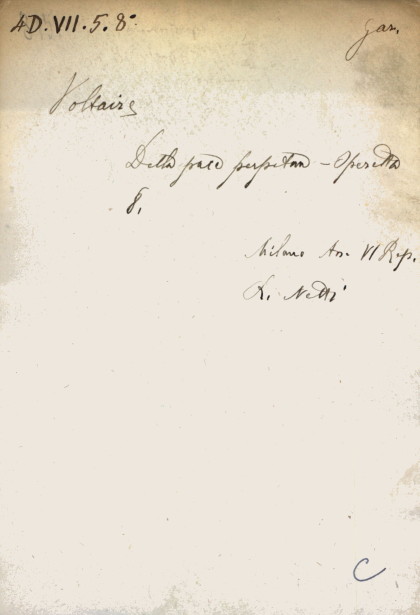 4D.VII.5.8
gar.
Voltaire
Della pace perpetua - Operetta
8.
Milano An. VI Rep.
R. Netti
C